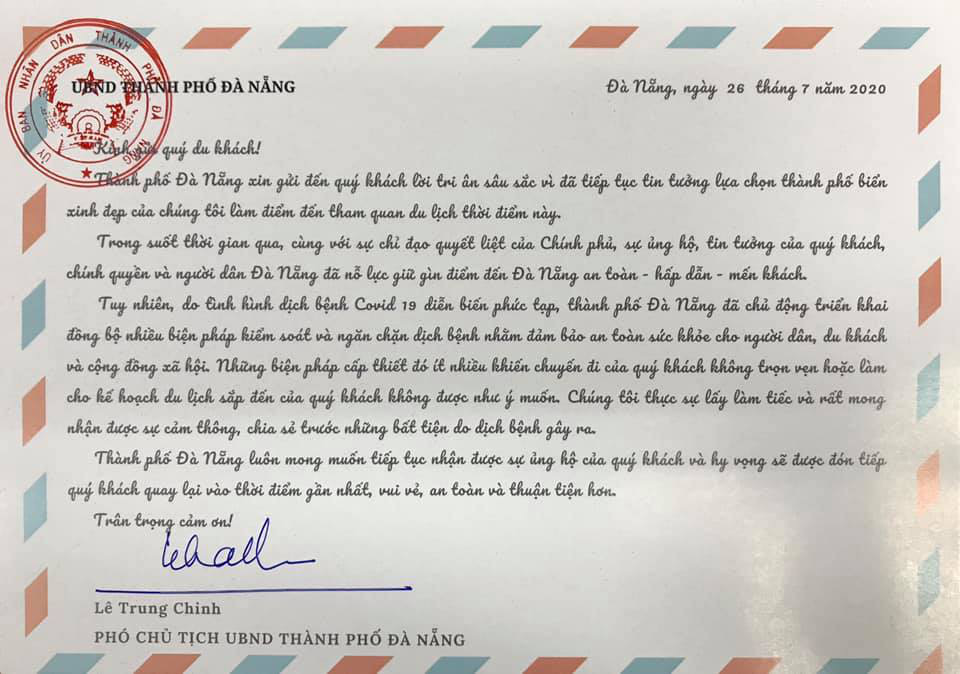 ỦY BAN NHÂN DÂN THÀNH PHỐ ĐÀ NẴNG
UBND THÀNH PHỐ ĐÀ NẴNG
Đà Nẵng, ngày 26 tháng 7 năm 2020
Kính gửi quý du khách!
Thành phố Đà Nẵng xin gửi đến quý khách lời tri ân sâu sắc vì đã tiếp tục tin tưởng lựa chọn thành phố biển
xinh đẹp của chúng tôi làm điểm đến tham quan du lịch thời điểm này.
Trong suốt thời gian qua, cùng với sự chỉ đạo quyết liệt của Chính phủ, sự ủng hộ, tin tưởng của quý khách,
chính quyền và người dân Đà Nẵng đã nỗ lực giữ gìn điểm đến Đà Nẵng an toàn - hấp dẫn - mến khách.
Tuy nhiên, do tình hình dịch bệnh Covid 19 diễn biến phức tạp, thành phố Đà Nẵng đã chủ động triển khai
đồng bộ nhiều biện pháp kiểm soát và ngăn chặn dịch bệnh nhằm đảm bảo an toàn sức khỏe cho người dân, du khách
và cộng đồng xã hội. Những biện pháp cấp thiết đó ít nhiều khiến chuyến đi của quý khách không trọn vẹn hoặc làm
cho kế hoạch du lịch sắp đến của quý khách không được như ý muốn. Chúng tôi thực sự lấy làm tiếc và rất mong
nhận được sự cảm thông, chia sẻ trước những bất tiện do dịch bệnh gây ra.
Thành phố Đà Nẵng luôn mong muốn tiếp tục nhận được sự ủng hộ của quý khách và hy vọng sẽ được đón tiếp
quý khách quay lại vào thời điểm gần nhất, vui vẻ, an toàn và thuận tiện hơn.
Trân trọng cảm ơn!
Lê Trung Chinh
PHÓ CHỦ TỊCH UBND THÀNH PHỐ ĐÀ NẴNG